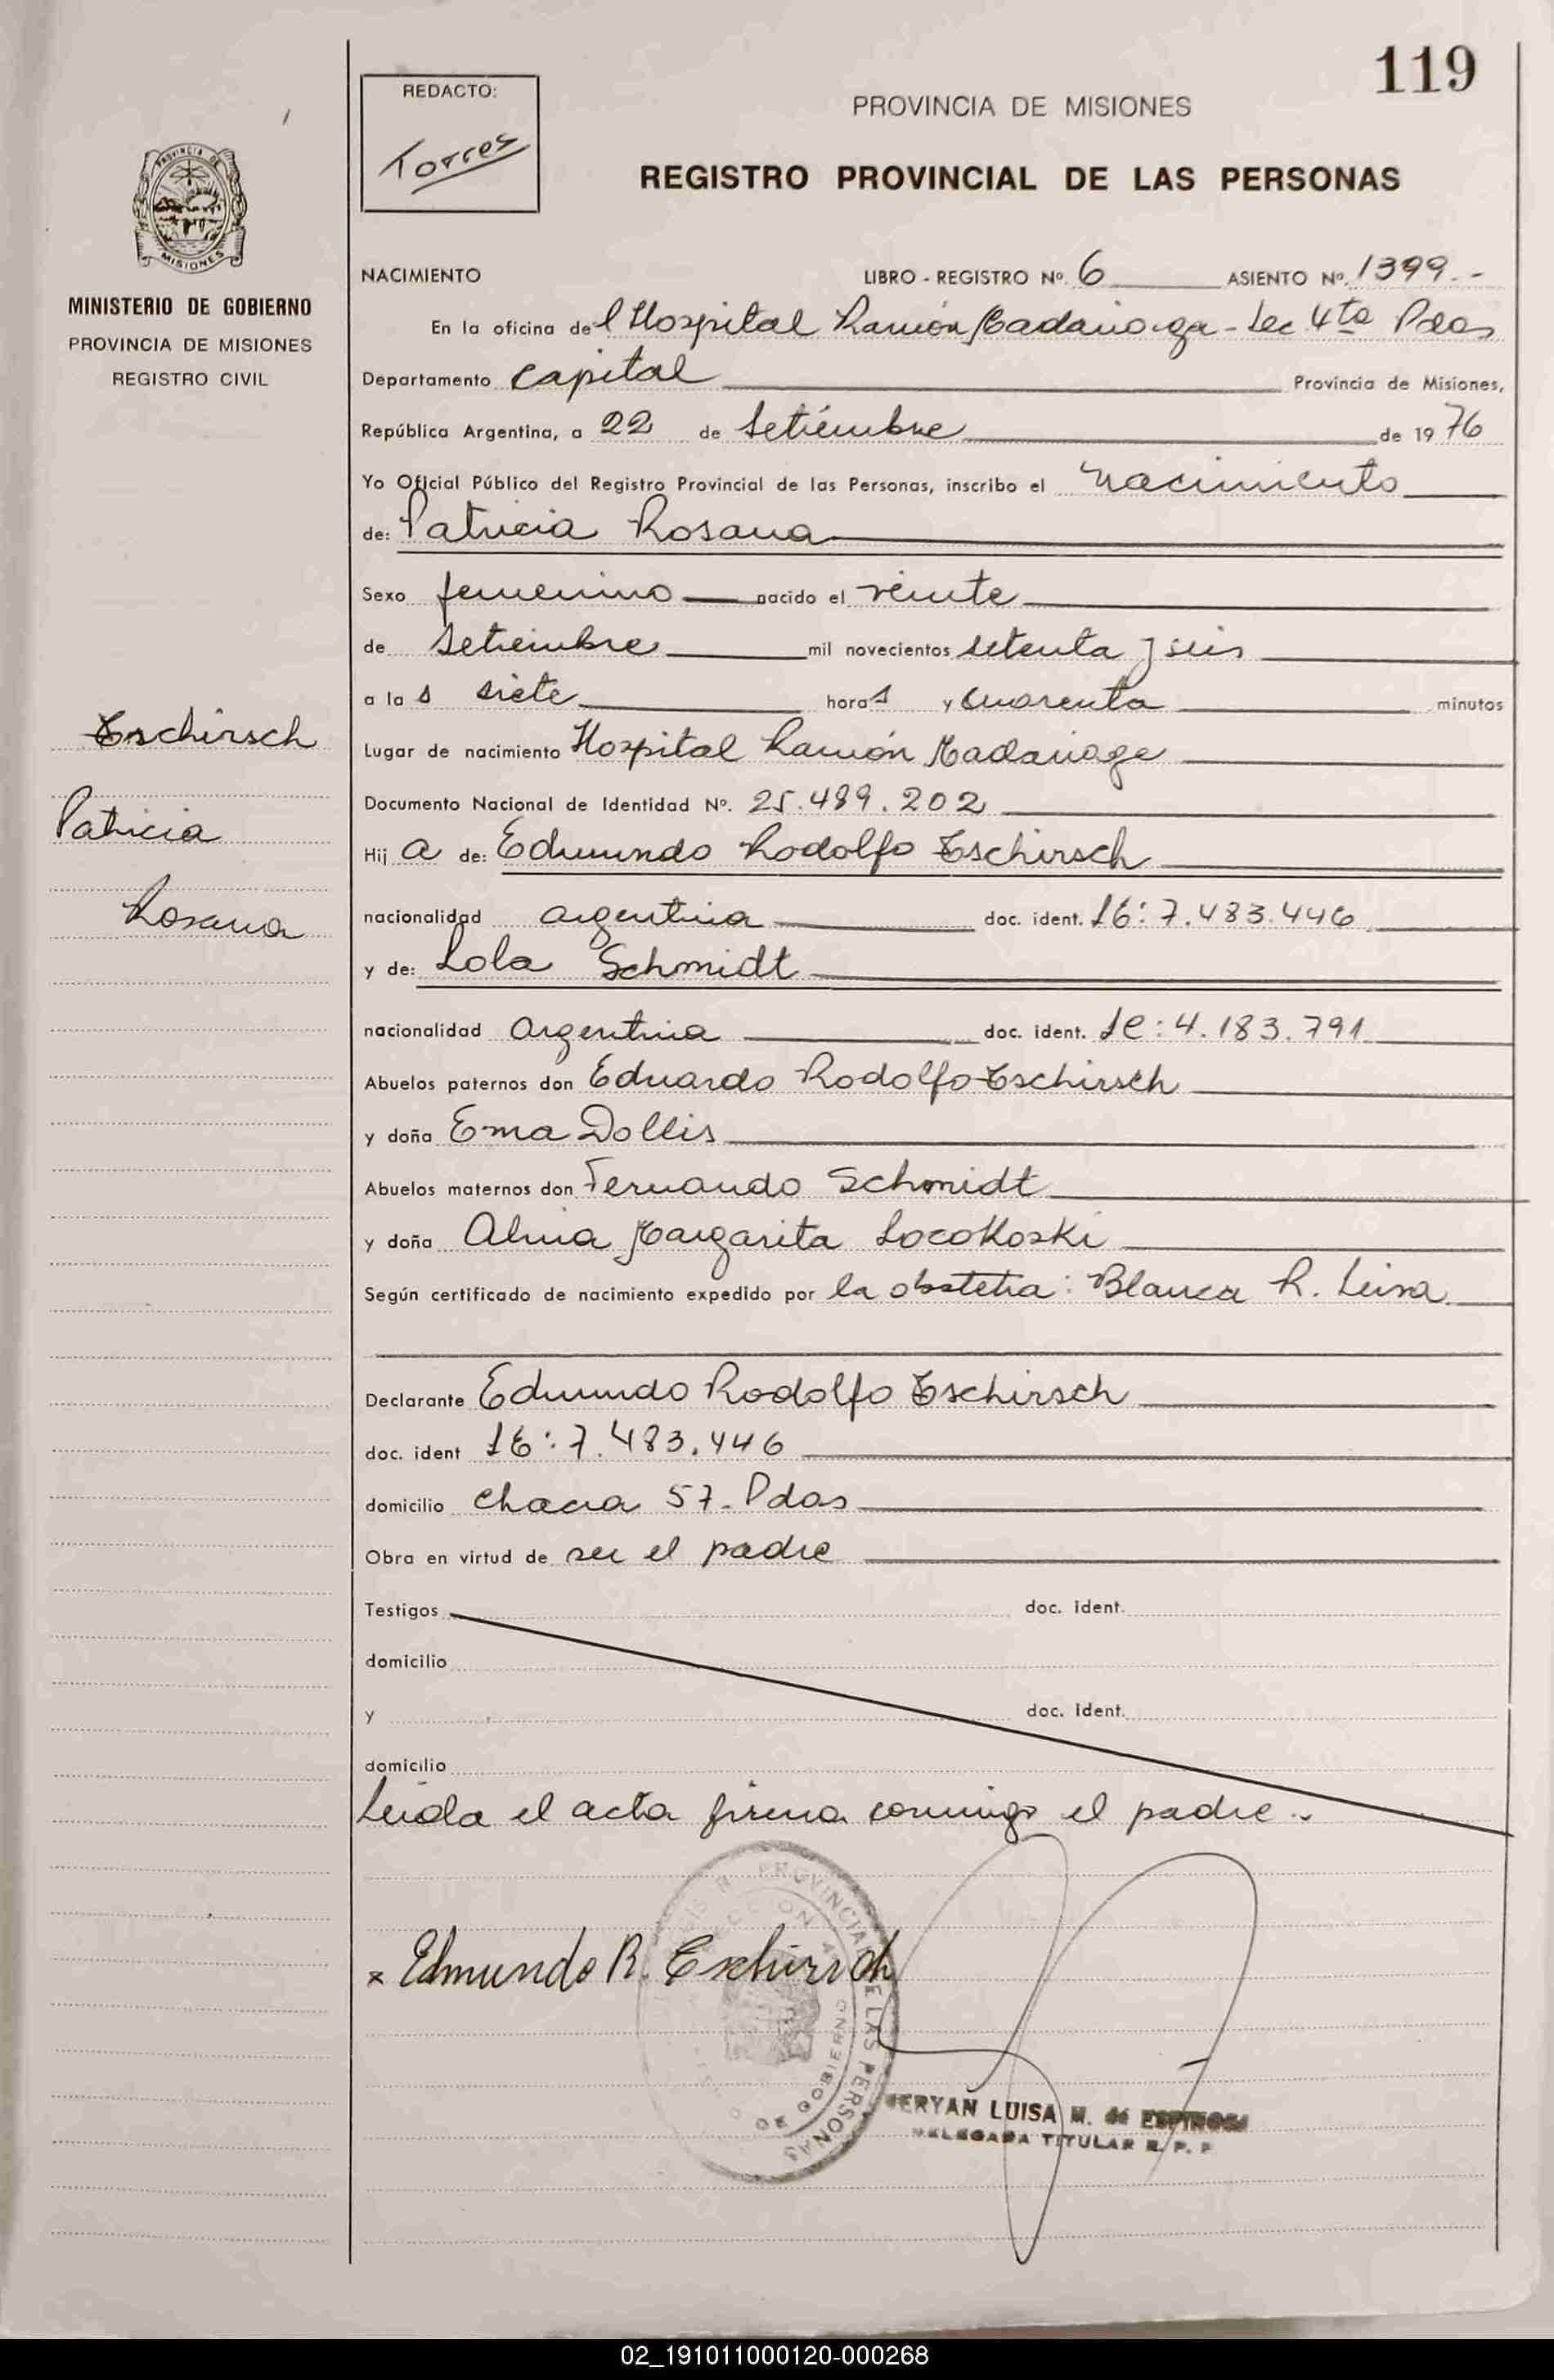 119
REDACTO:
Torres
PROVINCIA DE MISIONES
REGISTRO PROVINCIAL DE LAS PERSONAS
PROVINCIA DE
MISIONES
MINISTERIO DE GOBIERNO
PROVINCIA DE MISIONES
REGISTRO CIVIL
NACIMIENTO LIBRO - REGISTRO Nº. 6 ASIENTO Nº. 1399.-
En la oficina del Hospital Ramón Madariaga - Sec 4ta Pdas
Departamento Capital Provincia de Misiones,
República Argentina, a 22 de Setiembre de 1976
Yo Oficial Público del Registro Provincial de las Personas, inscribo el nacimiento
de: Patricia Rosana
Sexo femenino nacido el veinte
de Setiembre mil novecientos setenta y seis
a las siete horas y cuarenta minutos
Lugar de nacimiento Hospital Ramón Madariaga
Documento Nacional de Identidad Nº. 25.489.202
Hija de: Edmundo Rodolfo Eschirsch
nacionalidad argentina doc. ident. LE: 7.483.446
y de: Lola Schmidt
nacionalidad argentina doc. ident. LC: 4.183.791
Abuelos paternos don Eduardo Rodolfo Eschirsch
y doña Ema Dollis
Abuelos maternos don Fernando Schmidt
y doña Alma Margarita Socokoski
Según certificado de nacimiento expedido por la obstetra: Blanca R. Leiva
Declarante Edmundo Rodolfo Eschirsch
doc. ident LE: 7.483.446
domicilio Chacra 57 - Pdas
Obra en virtud de ser el padre
Testigos doc. ident.
domicilio
y doc. ident.
domicilio
Leida el acta firma conmigo el padre.-
Eschirsch
Patricia
Rosana
x Edmundo R. Eschirsch
PROVINCIAL DE LAS PERSONAS
DE GOBIERNO
MERYAN LUISA M. de ESPINOSA
DELEGADA TITULAR R. P. P
02_191011000120-000268